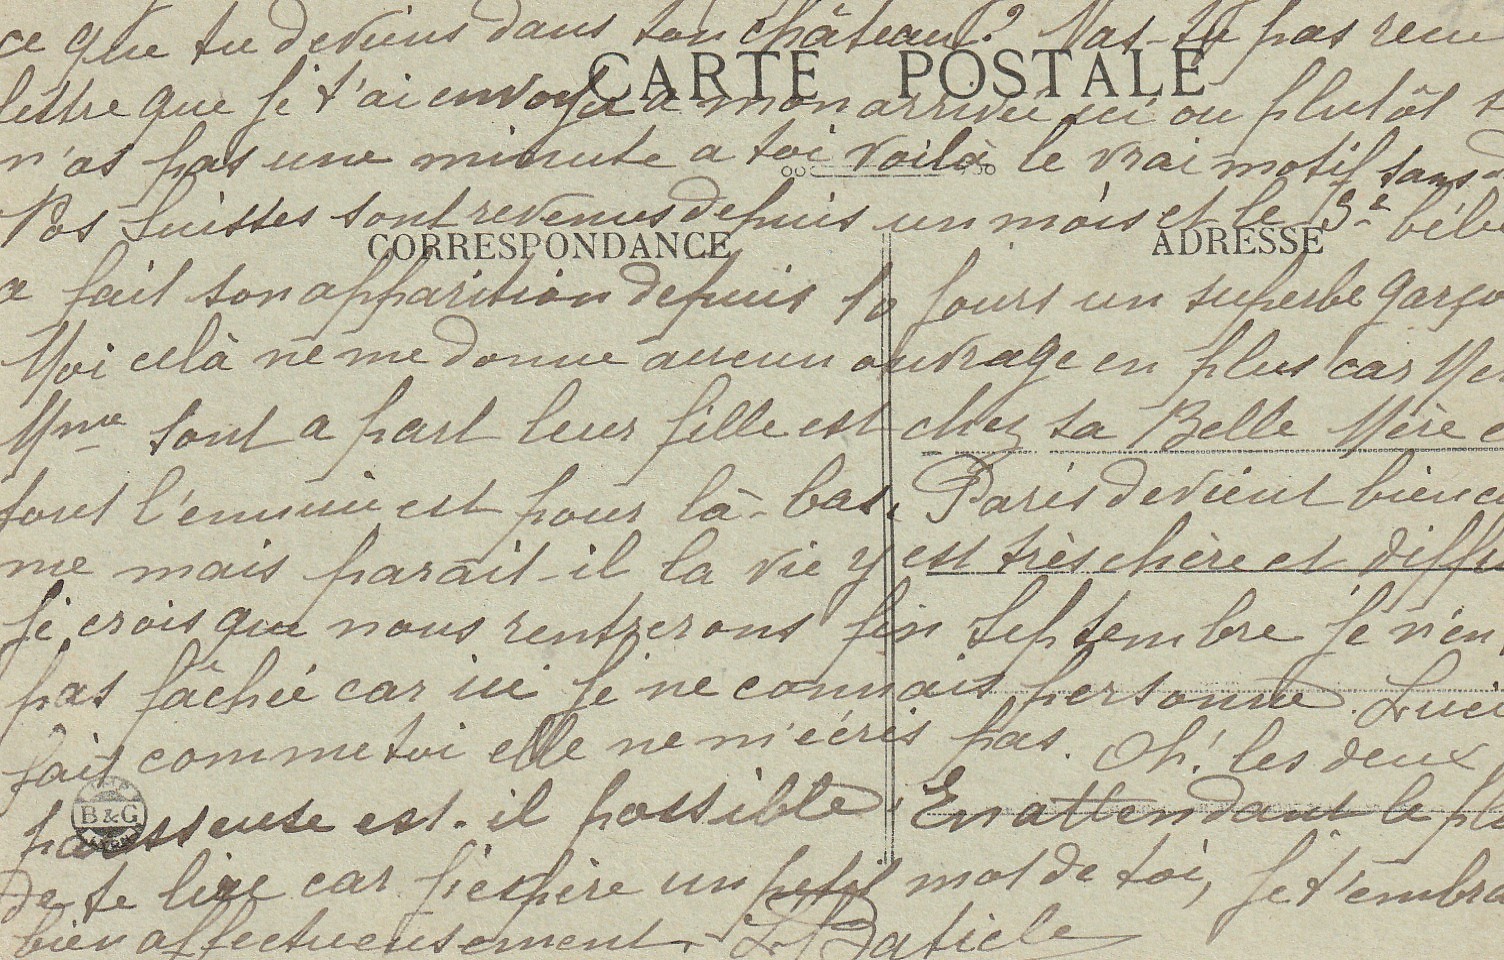 ce que tu deviens dans ton château? N'as-tu pas recu
CARTE POSTALE
lettre que je t'ai envoyée a mon arrivée ici ou plutôt
n'as pas une minute a toi voilà le vrai motif sans
Nos Suisses sont revenus depuis un mois et le 3e bébé
CORRESPONDANCE
ADRESSE
a fait son apparition depuis 10 jours un superbe garço
Moi celà ne me donne aucun ouvrage en plus car
Mme sont a part leur fille est chez sa Belle Mère
tout l'ennui est pour là-bas. Paris devient bien
me mais parait-il la vie y est très chère et diffi
je crois que nous rentrerons fin Septembre je n'en
pas fâchée car ici je ne connais personne. Luci
fait comme toi elle ne m'écris pas. Oh! les deux
paresseuse est-il possible. En attendant le pl
B & G
de te lire car j'espère un petit mot de toi, je t'embra
bien affectueusement.